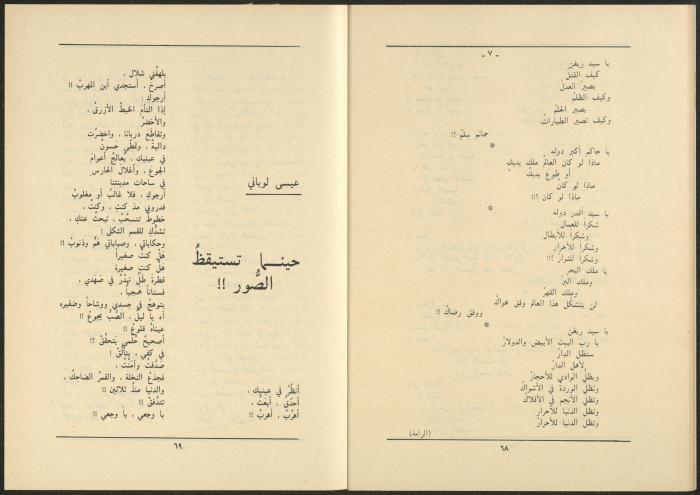 - ٧ -
يا سيد ريغن
كيف القتل
يصير العدل
وكيف الظلم
يصير الحلم
وكيف تصير الطيارات
حمائم سلم !!
يا حاكم أكبر دوله
ماذا لو كان العالم ملك يديك
أو طوع يديك
ماذا لو كان
ماذا لو كان ؟!!
يا سيد أقدر دوله
شكرا للعمال
وشكرا للأبطال
وشكرا للأحرار
وشكرا للثوار ؟!!
يا ملك البحر
وملك البر
وملك القهر
لن يتشكل هذا العالم وفق هواك
ووفق رضاك !!
يا سيد ريغن
يا رب البيت الأبيض والدولار
ستظل الدار
لأهل الدار
ويظل الوادي للأحجار
وتظل الوردة في الأشواك
وتظل الأنجم في الأفلاك
وتظل الدنيا للأحرار
وتظل الدنيا للأحرار
(الرامة)
٦٨
عيسى لوباني
حينما تستيقظُ
الصُّور !!
أنظرُ في عينيك ،
أحدّق ، أبحثُ ،
أهربُ ، أهربُ !!
يلهفُني شلال ،
أصرخُ ، أستجدي أين المهربُ !!
أرجوك ،
إذا التأمَ الخيطُ الأزرقُ ،
والأخضرُ
وتقاطعَ دربانا ، واخضرّت
داليةٌ ، وتمطّى حسونٌ
في عينيك ، يُعالجُ أعوامَ
الجوع ، وأغلالَ الحارس
في ساحات مدينتنا
أرجوك ، فلا غالبُ أو مغلوبُ
فدروبي مذ كنتِ ، وكنتُ ،
خطوطٌ تنسحّبُ ، تبحثُ عنك ،
تشدُّك للقمم الثكلى !
وحكاياتي ، وصباباتي همٌّ وذنوبٌ !!
هل كنتُ صغيراً
هل كنتِ صغيرة
قطرةَ طلّ تهذرُ في صَهَدي ،
فستاناً همجياً ،
يتوهجُ في جسدي ووشاحاً وضفيره
آه يا ليلُ ، الصَّبُّ يجوعُ !!
عيناهُ قلوعُ !!
أصحيحٌ حُلمي يتحققُ ؟!
في كفي ، يتألقُ !
صدّقتُ ، وآمنتُ ،
فجذعُ النخلة ، والقمرُ الضاحكُ ،
والدنيا منذُ ثلاثين !!
تتدفقُ !!
يا وجعي ، يا وجعي !!
٦٩